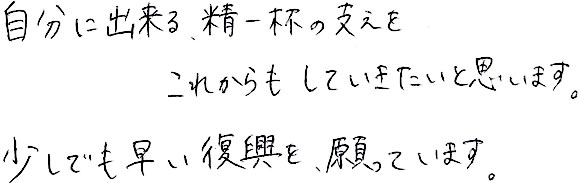 自分に出来る、精一杯の支えを
これからも していきたいと思います。
少しでも早い復興を、願っています。